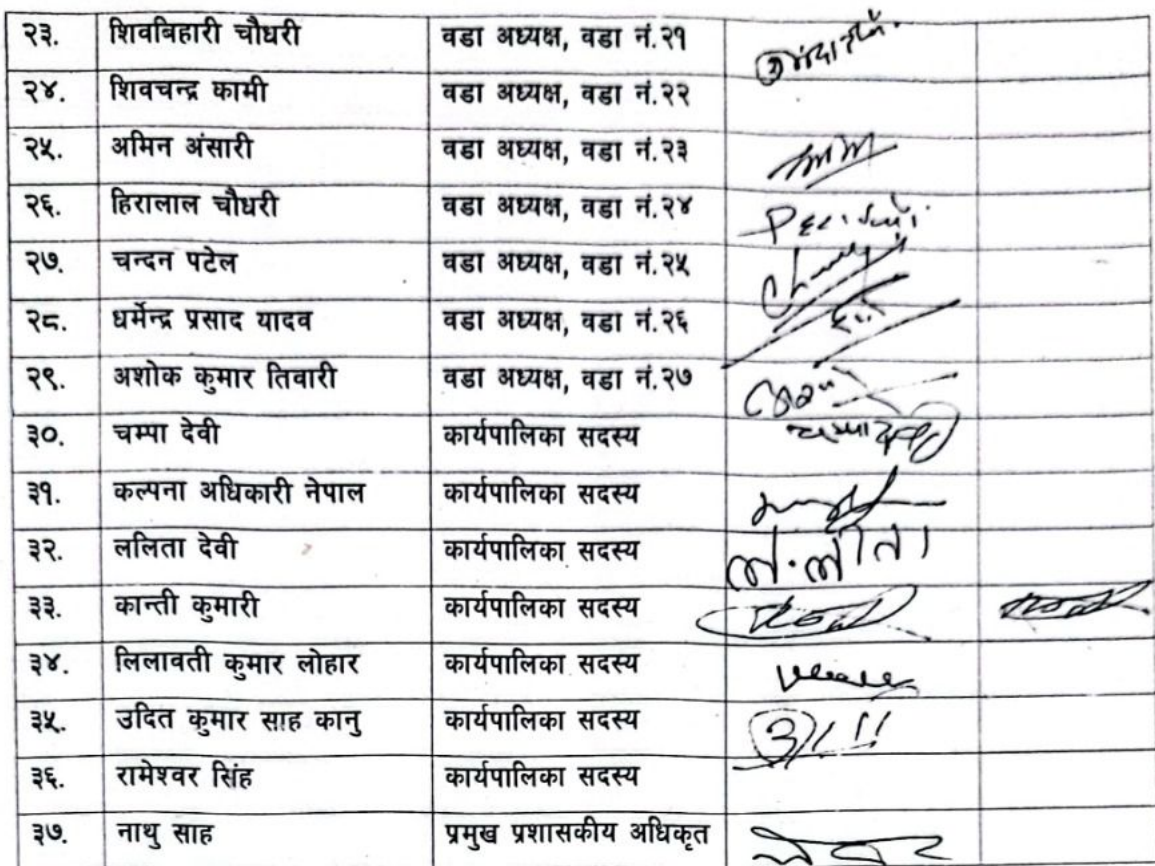 २३. शिवबिहारी चौधरी वडा अध्यक्ष, वडा नं.२१
२४. शिवचन्द्र कामी वडा अध्यक्ष, वडा नं.२२
२५. अमिन अंसारी वडा अध्यक्ष, वडा नं.२३
२६. हिरालाल चौधरी वडा अध्यक्ष, वडा नं.२४
२७. चन्दन पटेल वडा अध्यक्ष, वडा नं.२५
२८. धर्मेन्द्र प्रसाद यादव वडा अध्यक्ष, वडा नं.२६
२९. अशोक कुमार तिवारी वडा अध्यक्ष, वडा नं.२७
३०. चम्पा देवी कार्यपालिका सदस्य
३१. कल्पना अधिकारी नेपाल कार्यपालिका सदस्य
३२. ललिता देवी कार्यपालिका सदस्य
३३. कान्ती कुमारी कार्यपालिका सदस्य
३४. लिलावती कुमार लोहार कार्यपालिका सदस्य
३५. उदित कुमार साह कानु कार्यपालिका सदस्य
३६. रामेश्वर सिंह कार्यपालिका सदस्य
३७. नाथु साह प्रमुख प्रशासकीय अधिकृत